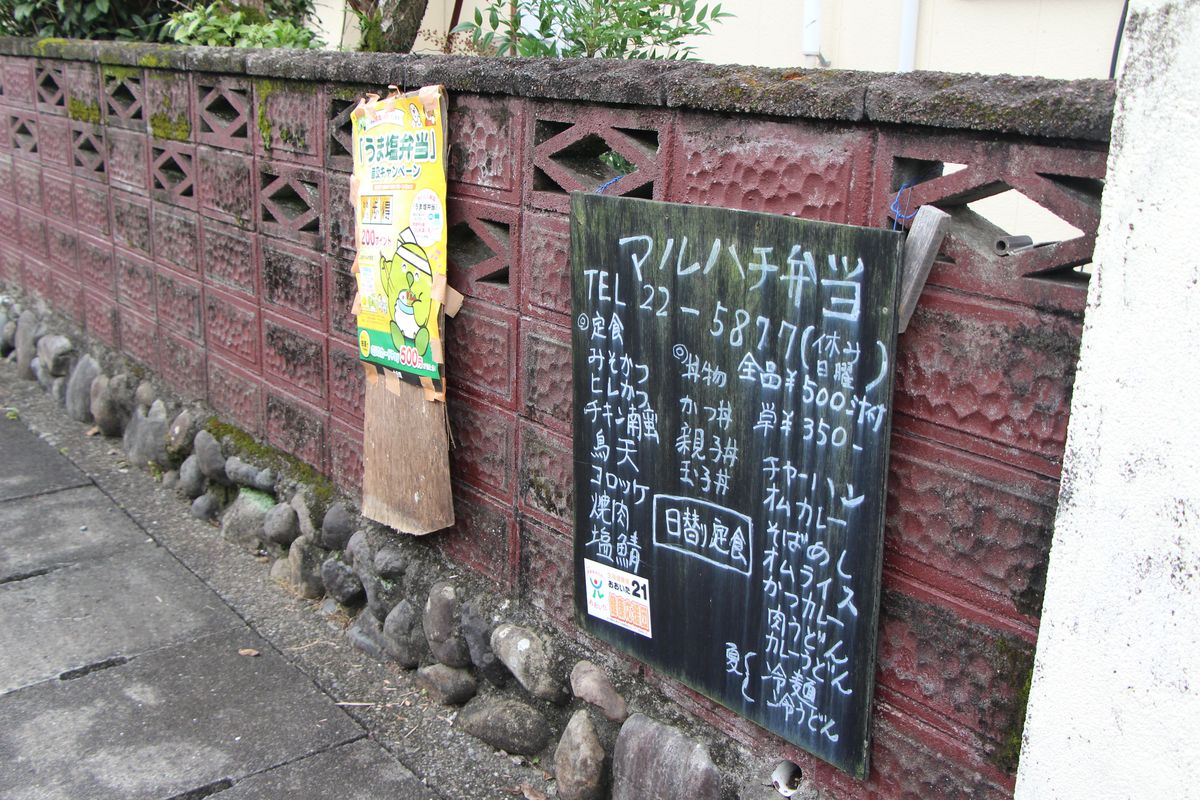 「うま塩弁当」
誕生キャンペーン
200ポイント
500
マルハチ弁当
TEL 22-5877(休み日曜)
◎定食
みそかつ
ヒレカツ
チキン南蛮
鳥天
コロッケ
焼肉
塩鯖
◎丼物
かつ丼
親子丼
玉子丼
日替り定食
全品¥500汁付
単¥350-
チャーハン
オムカレー
そばめし
オムライス
かつカレー
肉うどん
カレーうどん
夏
冷麺
冷うどん
おおいた21